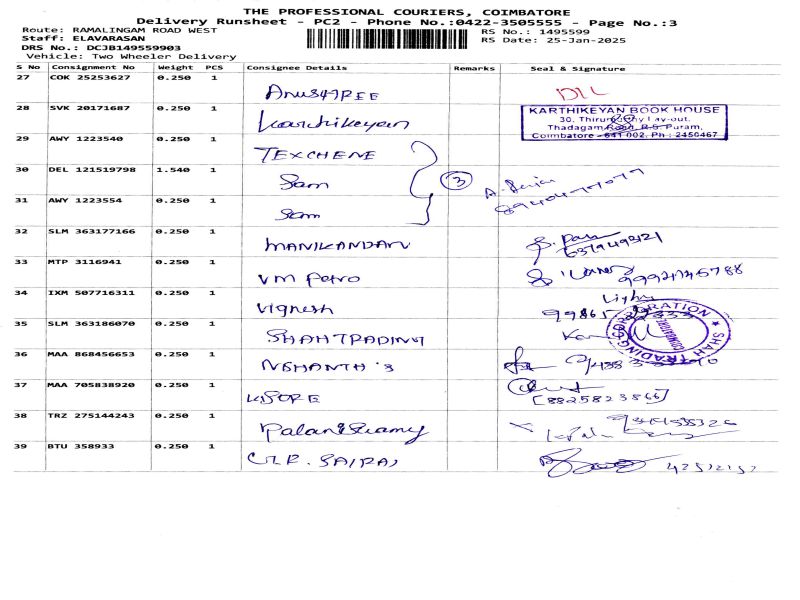 THE PROFESSIONAL COURIERS, COIMBATORE
Delivery Runsheet - PC2 - Phone No.:0422-3505555 - Page No.:3
Route: RAMALINGAM ROAD WEST
Staff: ELAVARASAN
DRS No.: DCJB149559903
Vehicle: Two Wheeler Delivery
RS No.: 1495599
RS Date: 25-Jan-2025
S No Consignment No Weight PCS Consignee Details Remarks Seal & Signature
27 COK 25253627 0.250 1 ANUSHREE DIL
28 SVK 20171687 0.250 1 Karthikeyan
KARTHIKEYAN BOOK HOUSE
30, Lay-out,
Thadagam Road, R.S. Puram,
Coimbatore - 641 002. Ph : 2450467
29 AWY 1223540 0.250 1 TEXCHENE
30 DEL 121519798 1.540 1 Sam 3
31 AWY 1223554 0.250 1 Sam
32 SLM 363177166 0.250 1 MANIKANDAN
33 MTP 3116941 0.250 1 VM Petro
34 IXM 507716311 0.250 1 Vignesh
35 SLM 363186070 0.250 1 SHAH TRADING
SHAH TRADING CORPORATION
COIMBATORE
36 MAA 868456653 0.250 1 NISHANTH'S
37 MAA 705838920 0.250 1 KISORE [8825823866]
38 TRZ 275144243 0.250 1 Palaniswamy
39 BTU 358933 0.250 1 C.T.R. SAIRAJ